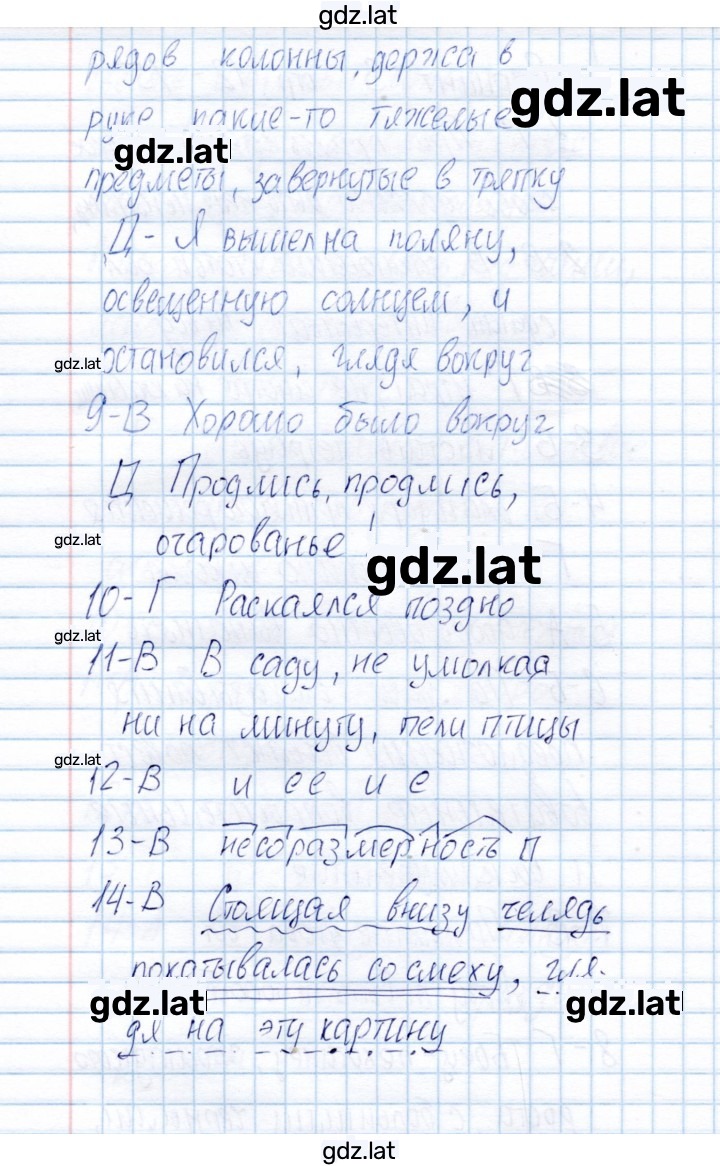 gdz.lat
рядов колонны, держа в
gdz.lat
руке какие-то тяжелые
gdz.lat
предметы, завернутые в тряпку
Д- Я вышел на поляну,
освещенную солнцем, и
gdz.lat
остановился, глядя вокруг
9-В Хорошо было вокруг
Д Продлись, продлись,
gdz.lat
очарованье!
gdz.lat
10-Г Раскаялся поздно
gdz.lat
11-В В саду, не умолкая
ни на минуту, пели птицы
gdz.lat
12-В и ее и е
13-В несоразмерность П
14-В Стоящая внизу челядь
покатывалась со смеху, гля-
gdz.lat gdz.lat
дя на эту картину
gdz.lat